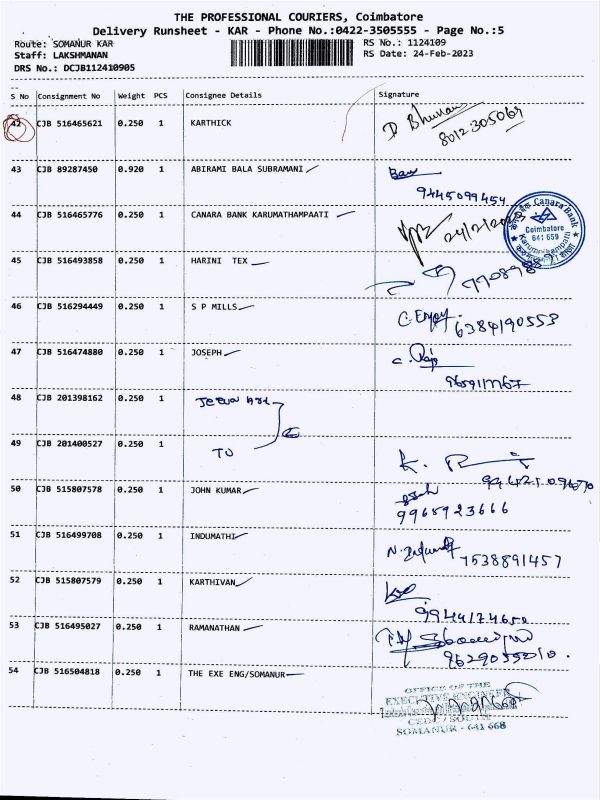 THE PROFESSIONAL COURIERS, Coimbatore
Delivery Runsheet - KAR - Phone No.:0422-3505555 - Page No.:5
Route: SOMANUR KAR RS No.: 1124109
Staff: LAKSHMANAN RS Date: 24-Feb-2023
DRS No.: DCJB112410905
S No Consignment No Weight PCS Consignee Details Signature
42 CJB 516465621 0.250 1 KARTHICK
43 CJB 89287450 0.920 1 ABIRAMI BALA SUBRAMANI
9445099454
44 CJB 516465776 0.250 1 CANARA BANK KARUMATHAMPAATI
24/2/2023
Canara Bank
Coimbatore
641 659
45 CJB 516493858 0.250 1 HARINI TEX
46 CJB 516294449 0.250 1 S P MILLS
6384190553
47 CJB 516474880 0.250 1 JOSEPH
48 CJB 201398162 0.250 1
49 CJB 201400527 0.250 1 TO
50 CJB 515807578 0.250 1 JOHN KUMAR
9965923666
51 CJB 516499708 0.250 1 INDUMATHI
7538891457
52 CJB 515807579 0.250 1 KARTHIVAN
9944174650
53 CJB 516495027 0.250 1 RAMANATHAN
54 CJB 516504818 0.250 1 THE EXE ENG/SOMANUR
OFFICE OF THE
EXECUTIVE ENGINEER
SOMANUR - 641 668